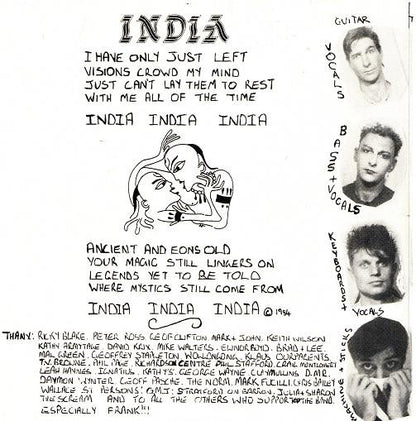 INDIA
I HAVE ONLY JUST LEFT
VISIONS CROWD MY MIND
JUST CAN'T LAY THEM TO REST
WITH ME ALL OF THE TIME
INDIA INDIA INDIA
ANCIENT AND EONS OLD
YOUR MAGIC STILL LINGERS ON
LEGENDS YET TO BE TOLD
WHERE MYSTICS STILL COME FROM
INDIA INDIA INDIA © 1984
GUITAR
VOCALS
BASS + VOCALS
KEYBOARDS +
VOCALS
THANX: RICKY BLAKE. PETER ROSS. GEOF CLIFTON. MARK + JOHN. KEITH WILSON
KATHY ARMITAGE DAVID KNOX. MIKE WALTERS. ELINOR BYRD. BRAD + LEE
MAL GREEN. GEOFFREY STAPLETON WOLLONGONG. KLAUS OUR PARENTS.
T.V. BROWNE. PHIL PIKE RICHARDSON CENTRE PHIL STAFFORD. CRAIG MONTGOMERY
LEAH HAYNES. IGNATIUS. KATHY'S. GEORGE WAYNE D.M.R.
WYNTER GEOFF THE NORM. MARK CHRIS BAILEY
WALLACE ST PERSONS. STRATFORD ON BARRON. JULIA + SHARON
THE SCREAM AND TO ALL THE OTHERS WHO SUPPORTED THE BAND.
ESPECIALLY FRANK!!!